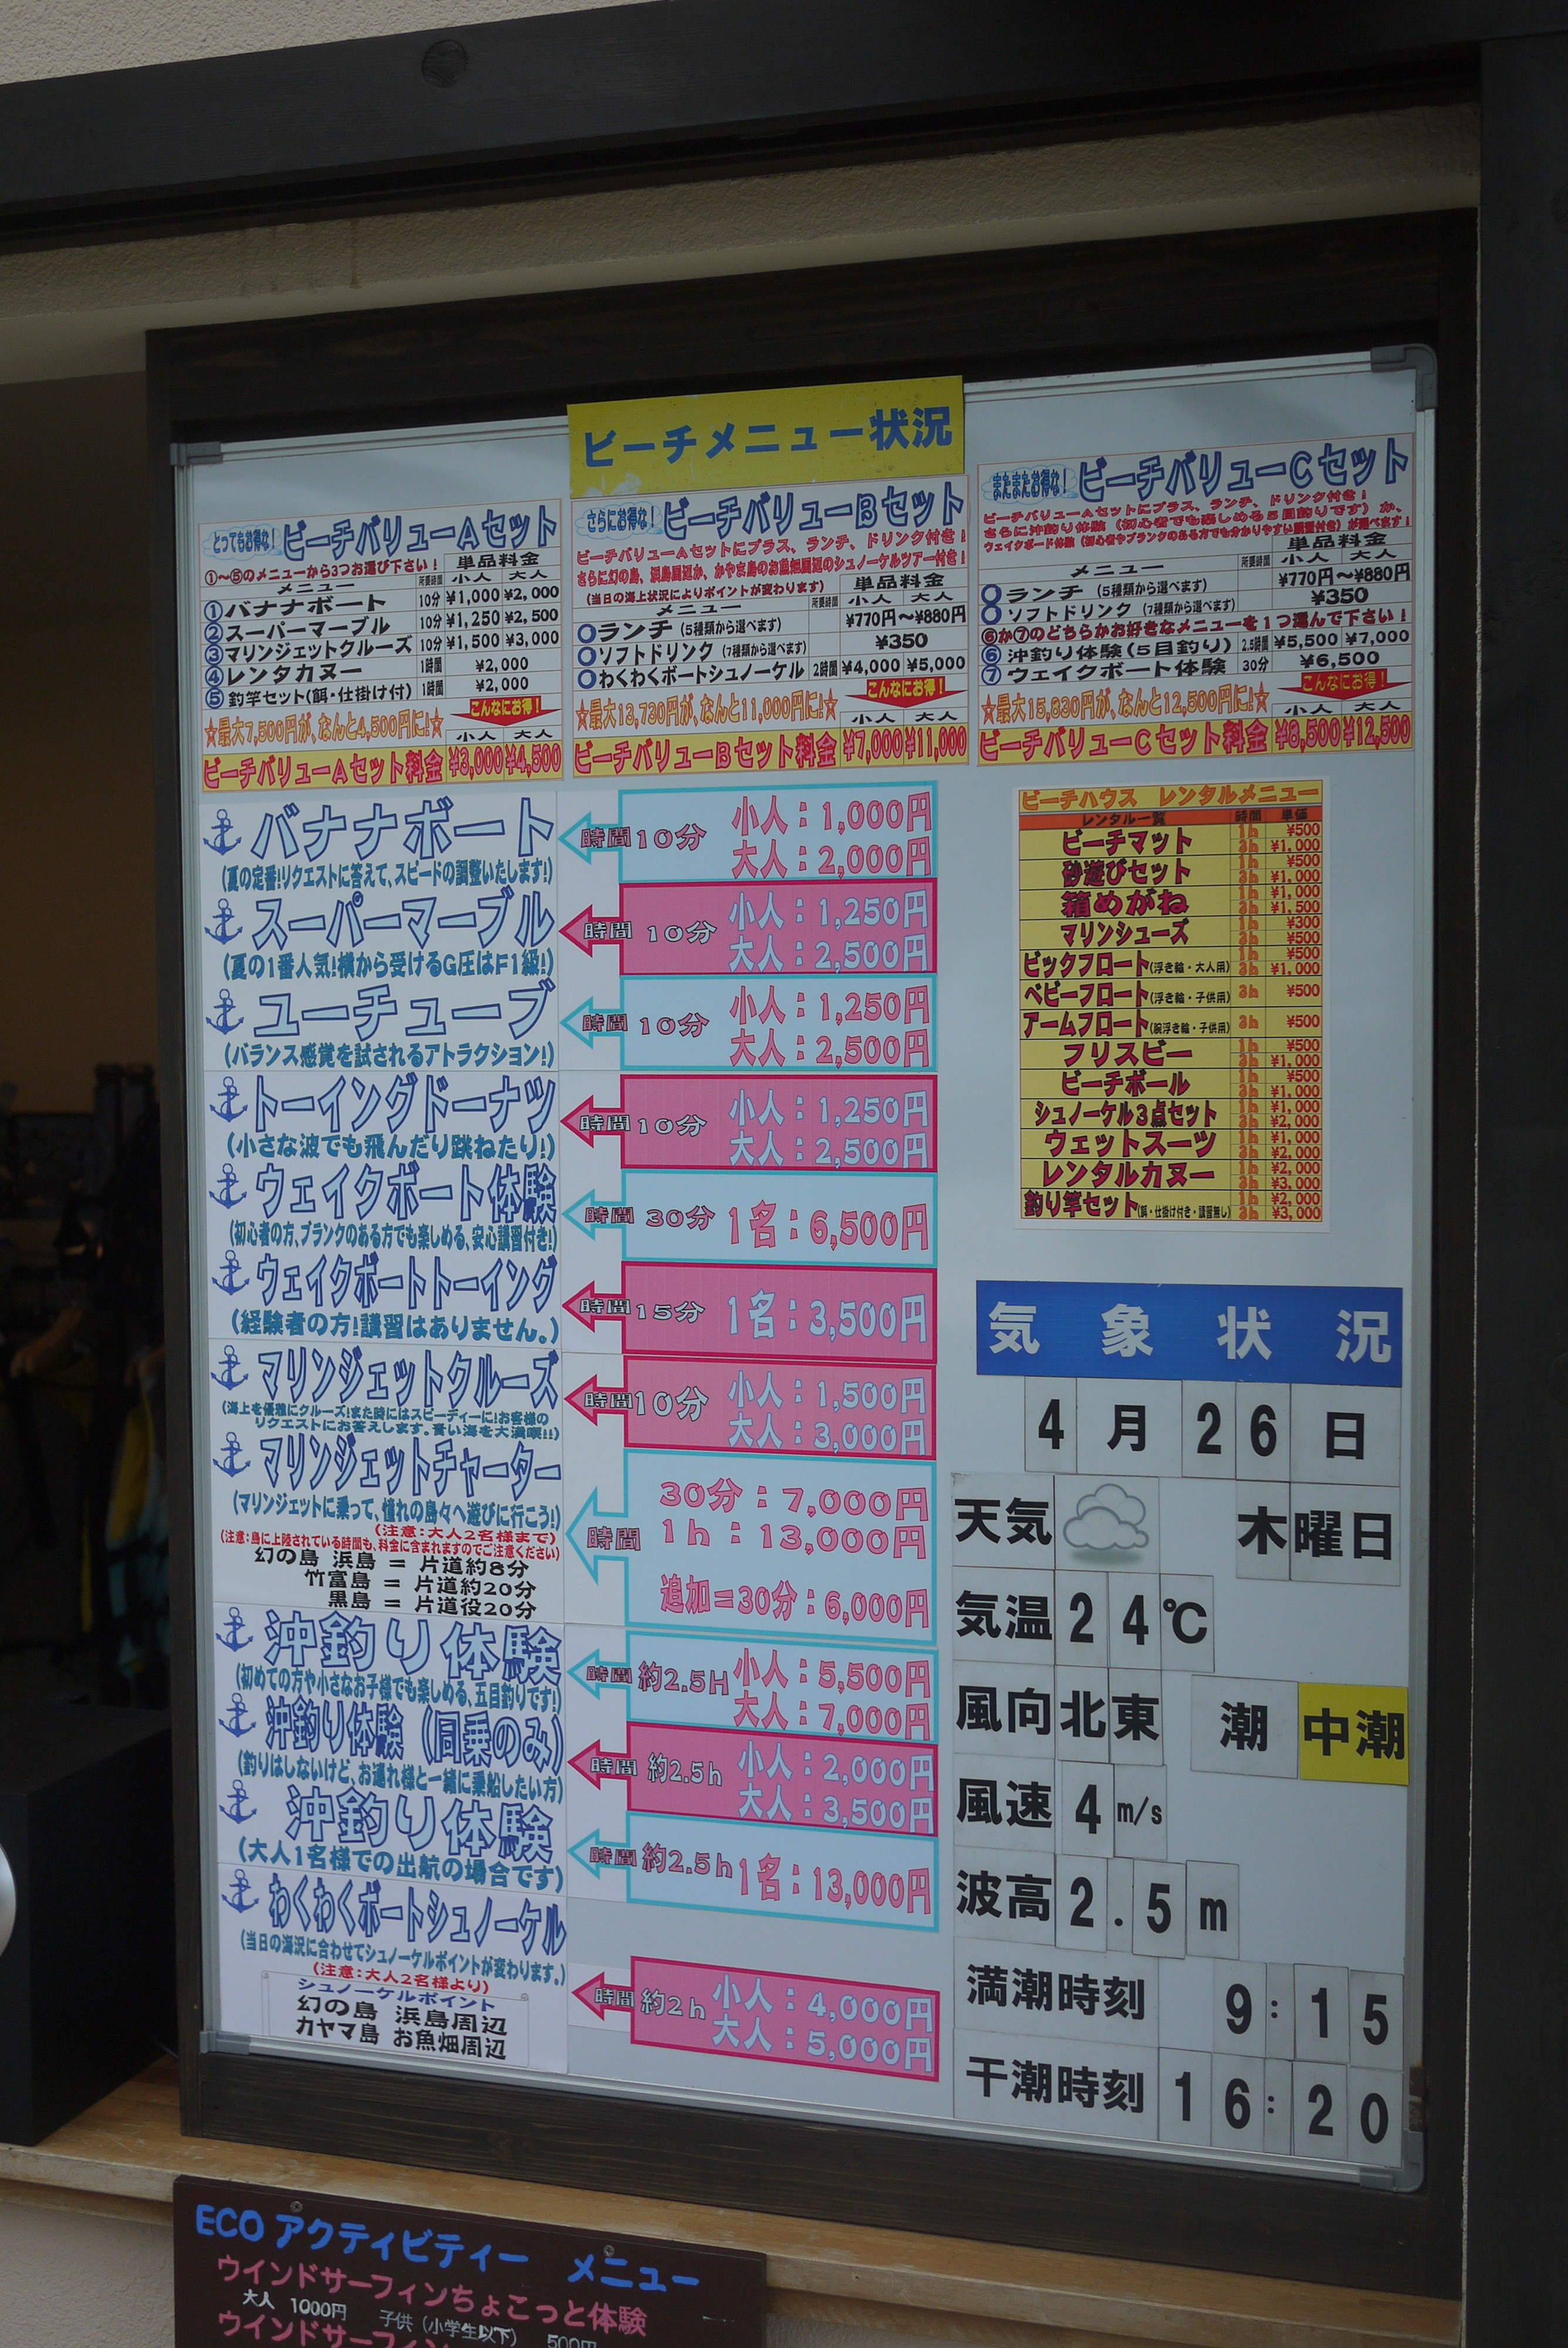 ビーチメニュー状況
とってもお得な！ ビーチバリューAセット
①～⑤のメニューから3つお選び下さい！ 単品料金
メニュー 所要時間 小人 大人
①バナナボート 10分 ¥1,000 ¥2,000
②スーパーマーブル 10分 ¥1,250 ¥2,500
③マリンジェットクルーズ 10分 ¥1,500 ¥3,000
④レンタカヌー 1時間 ¥2,000
⑤釣竿セット(餌・仕掛け付) 1時間 ¥2,000
こんなにお得！
☆最大7,500円が、なんと4,500円に!☆ 小人 大人
ビーチバリューAセット料金 ¥3,000 ¥4,500
さらにお得な！ ビーチバリューBセット
ビーチバリューAセットにプラス、ランチ、ドリンク付き！
さらに幻の島、浜島周辺か、かやま島のお魚畑周辺のシュノーケルツアー付き！
(当日の海上状況によりポイントが変わります) 単品料金
メニュー 所要時間 小人 大人
○ランチ (5種類から選べます) ¥770円～¥880円
○ソフトドリンク (7種類から選べます) ¥350
○わくわくボートシュノーケル 2時間 ¥4,000 ¥5,000
こんなにお得！
☆最大13,730円が、なんと11,000円に!☆ 小人 大人
ビーチバリューBセット料金 ¥7,000 ¥11,000
またまたお得な！ ビーチバリューCセット
ビーチバリューAセットにプラス、ランチ、ドリンク付き！
さらに沖釣り体験 (初心者でも楽しめる5目釣りです) か、
ウェイクボード体験 (初心者やブランクのある方でも分かりやすい講習付き) が選べます！
単品料金
メニュー 所要時間 小人 大人
○ランチ (5種類から選べます) ¥770円～¥880円
○ソフトドリンク (7種類から選べます) ¥350
⑥か⑦のどちらかお好きなメニューを1つ選んで下さい！
⑥沖釣り体験(5目釣り) 2.5時間 ¥5,500 ¥7,000
⑦ウェイクボート体験 30分 ¥6,500
こんなにお得！
☆最大15,830円が、なんと12,500円に!☆ 小人 大人
ビーチバリューCセット料金 ¥8,500 ¥12,500
バナナボート
(夏の定番!リクエストに答えて、スピードの調整いたします!)
時間 10分 小人：1,000円
大人：2,000円
スーパーマーブル
(夏の1番人気!横から受けるG圧はF1級!)
時間 10分 小人：1,250円
大人：2,500円
ユーチューブ
(バランス感覚を試されるアトラクション!)
時間 10分 小人：1,250円
大人：2,500円
トーイングドーナツ
(小さな波でも飛んだり跳ねたり!)
時間 10分 小人：1,250円
大人：2,500円
ウェイクボート体験
(初心者の方、ブランクのある方でも楽しめる、安心講習付き!)
時間 30分 1名：6,500円
ウェイクボートトーイング
(経験者の方!講習はありません。)
時間 15分 1名：3,500円
マリンジェットクルーズ
(海上を優雅にクルーズ!また時にはスピーディーに!お客様の
リクエストにお答えします。青い海を大満喫!!)
時間 10分 小人：1,500円
大人：3,000円
マリンジェットチャーター
(マリンジェットに乗って、憧れの島々へ遊びに行こう!)
(注意：大人2名様まで)
(注意：島に上陸されている時間も、料金に含まれますのでご注意ください)
幻の島 浜島 = 片道約8分
竹富島 = 片道約20分
黒島 = 片道役20分
時間
30分：7,000円
1h：13,000円
追加=30分：6,000円
沖釣り体験
(初めての方や小さなお子様でも楽しめる、五目釣りです!)
時間 約2.5H 小人：5,500円
大人：7,000円
沖釣り体験 (同乗のみ)
(釣りはしないけど、お連れ様と一緒に乗船したい方)
時間 約2.5h 小人：2,000円
大人：3,500円
沖釣り体験
(大人1名様での出航の場合です)
時間 約2.5h 1名：13,000円
わくわくボートシュノーケル
(当日の海況に合わせてシュノーケルポイントが変わります。)
(注意：大人2名様より)
シュノーケルポイント
幻の島 浜島周辺
カヤマ島 お魚畑周辺
時間 約2h 小人：4,000円
大人：5,000円
ビーチハウス レンタルメニュー
レンタル一覧 時間 単価
ビーチマット 1h ¥500
3h ¥1,000
砂遊びセット 1h ¥500
3h ¥1,000
箱めがね 1h ¥1,000
3h ¥1,500
マリンシューズ 1h ¥300
3h ¥500
ビックフロート(浮き輪・大人用) 1h ¥500
3h ¥1,000
ベビーフロート(浮き輪・子供用) 3h ¥500
アームフロート(腕浮き輪・子供用) 3h ¥500
フリスビー 1h ¥500
3h ¥1,000
ビーチボール 1h ¥500
3h ¥1,000
シュノーケル3点セット 1h ¥1,000
3h ¥2,000
ウェットスーツ 1h ¥1,000
3h ¥2,000
レンタルカヌー 1h ¥2,000
3h ¥3,000
釣り竿セット(餌・仕掛け付き・講習無し) 1h ¥2,000
3h ¥3,000
気象状況
4月26日
天気 木曜日
気温 24℃
風向 北東 潮 中潮
風速 4 m/s
波高 2.5m
満潮時刻 9:15
干潮時刻 16:20
ECO アクティビティー メニュー
ウインドサーフィンちょこっと体験
大人 1000円 子供 (小学生以下) 500円
ウインドサーフィン